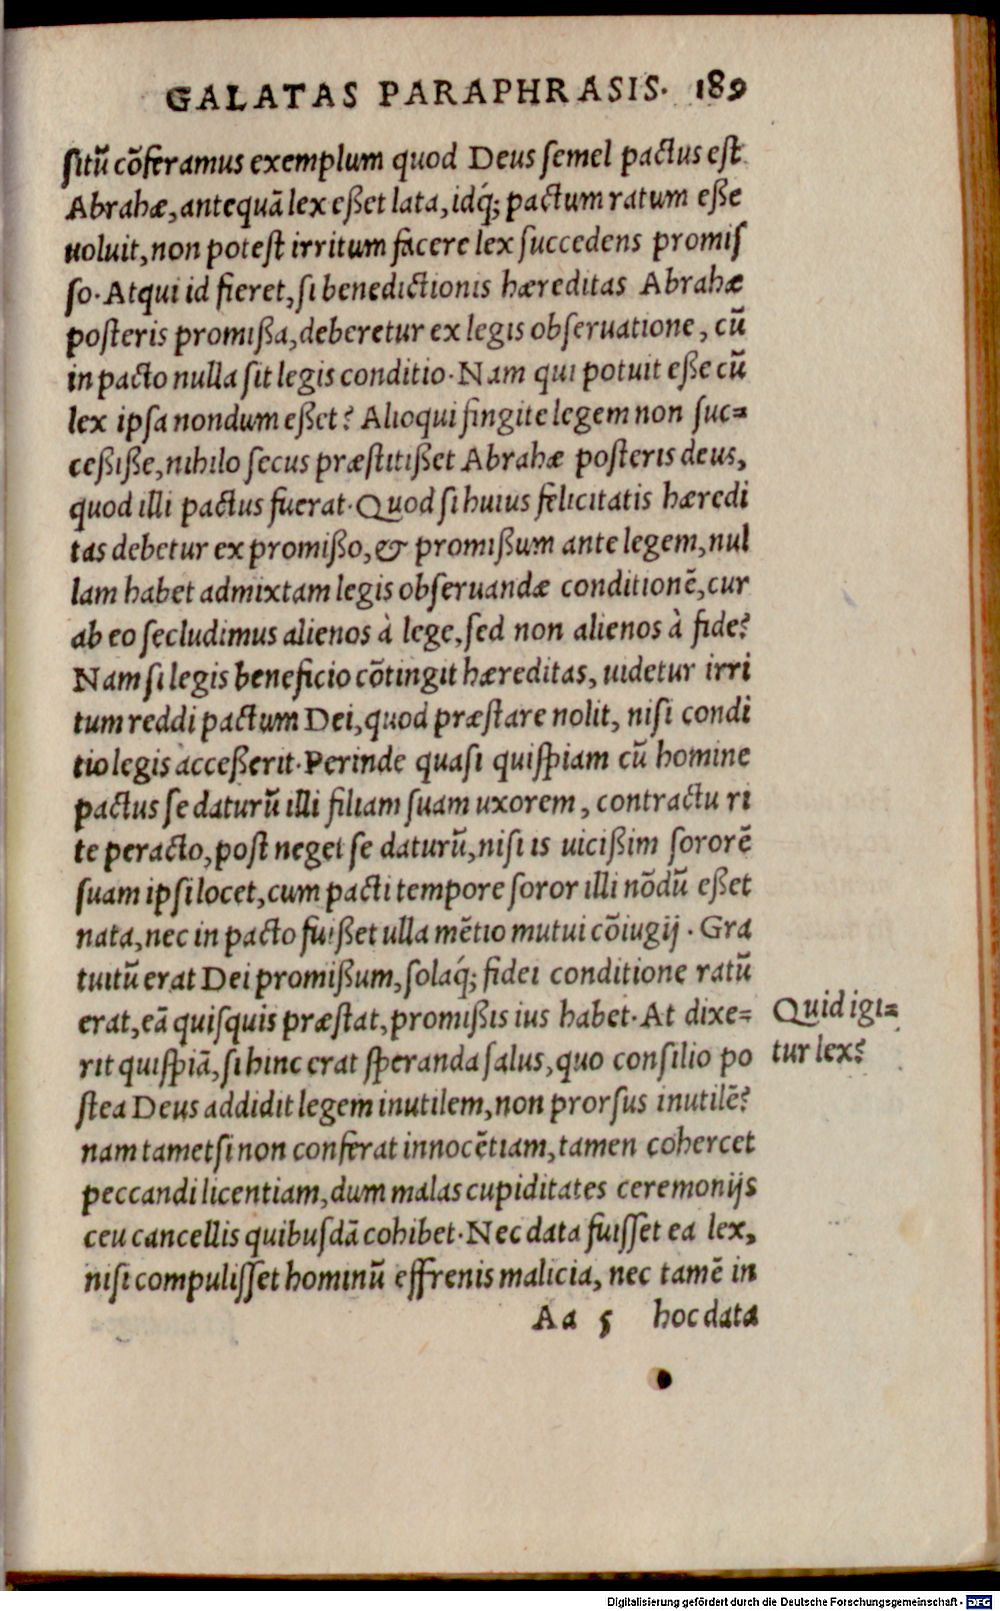 GALATAS PARAPHRASIS. 189
ſitũ cõferamus exemplum quod Deus ſemel pactus eſt
Abrahæ, antequã lex eßet lata, idq́; pactum ratum eße
uoluit, non poteſt irritum facere lex ſuccedens promiſ
ſo. Atqui id fieret, ſi benedictionis hæreditas Abrahæ
poſteris promißa, deberetur ex legis obſeruatione, cũ
in pacto nulla ſit legis conditio. Nam qui potuit eße cũ
lex ipſa nondum eßet? Alioqui fingite legem non ſuc=
ceßiße, nihilo ſecus præſtitißet Abrahæ poſteris deus,
quod illi pactus fuerat. Quod ſi huius felicitatis hæredi
tas debetur ex promißo, & promißum ante legem, nul
lam habet admixtam legis obſeruandæ conditionẽ, cur
ab eo ſecludimus alienos à lege, ſed non alienos à fide?
Nam ſi legis beneficio cõtingit hæreditas, uidetur irri
tum reddi pactum Dei, quod præſtare nolit, niſi condi
tio legis acceßerit. Perinde quaſi quiſpiam cũ homine
pactus ſe daturũ illi filiam ſuam uxorem, contractu ri
te peracto, poſt neget ſe daturũ, niſi is uicißim ſororẽ
ſuam ipſi locet, cum pacti tempore ſoror illi nõdũ eßet
nata, nec in pacto fuißet ulla mẽtio mutui cõiugij. Gra
tuitũ erat Dei promißum, ſolaq́; fidei conditione ratũ
erat, eã quiſquis præſtat, promißis ius habet. At dixe=
rit quiſpiã, ſi hinc erat ſperanda ſalus, quo conſilio po
ſtea Deus addidit legem inutilem, non prorſus inutilẽ?
nam tametſi non conferat innocẽtiam, tamen cohercet
peccandi licentiam, dum malas cupiditates ceremonijs
ceu cancellis quibuſdã cohibet. Nec data fuiſſet ea lex,
niſi compuliſſet hominũ effrenis malicia, nec tamẽ in
Aa 5 hoc data
Quid igi=
tur lex?
Digitalisierung gefördert durch die Deutsche Forschungsgemeinschaft - DFG